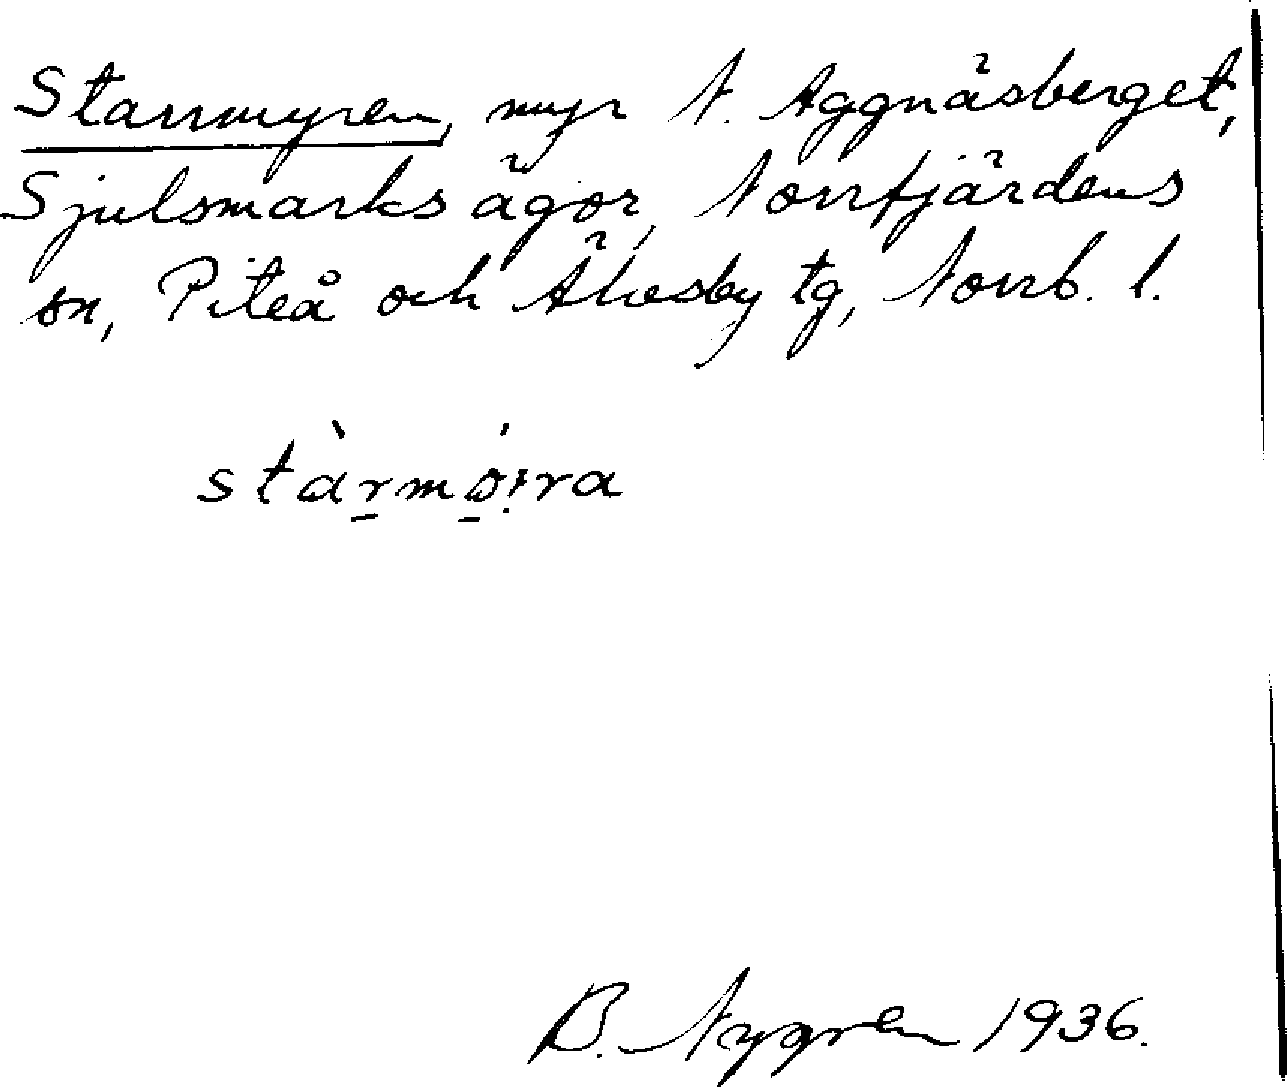 Starrmyren, myr N. Aggnäsberget,
Sjulsmarks ägor, Norrfjärdens
sn, Piteå och Älvsby tg, Norrb. l.
stàr̲mǿ̲̣ra
B. Nygren 1936.